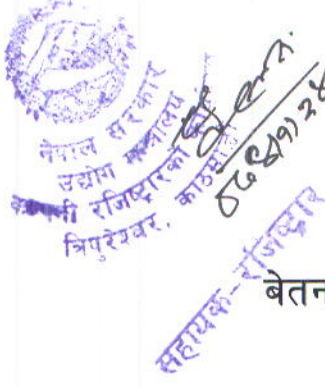 नेपाल सरकार
उद्योग मन्त्रालय
कम्पनी रजिष्ट्रारको
त्रिपुरेश्वर, काठमाडौं
सहायक-रजिष्ट्रार
बेतन